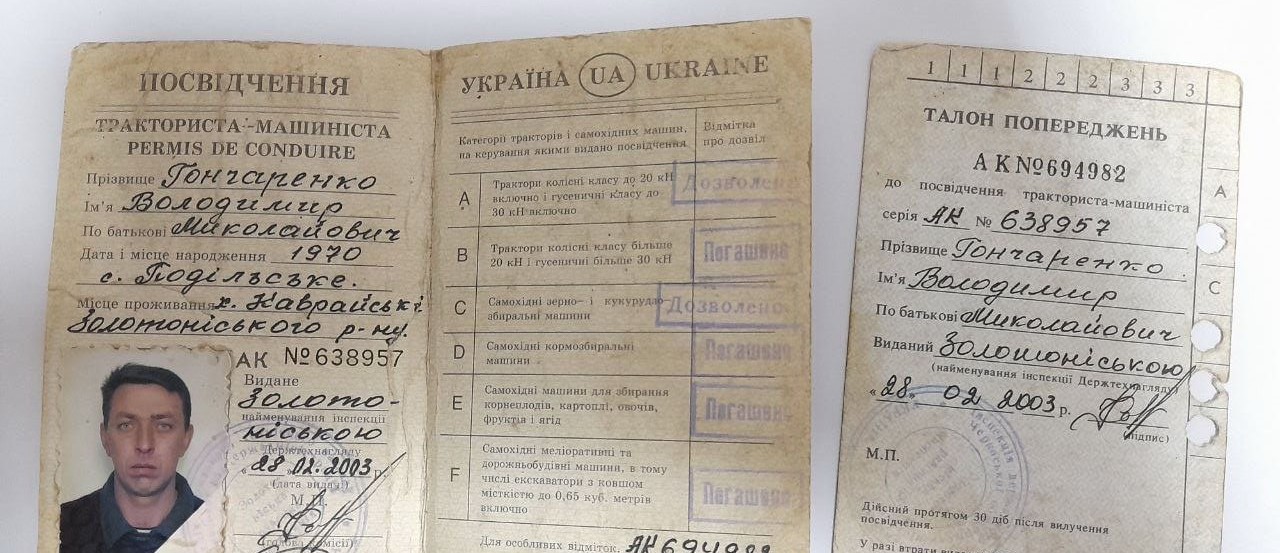 ПОСВІДЧЕННЯ
ТРАКТОРИСТА-МАШИНІСТА
PERMIS DE CONDUIRE
Прізвище Гончаренко
Ім'я Володимир
По батькові Миколайович
Дата і місце народження 1970
с. Подільське.
Місце проживання х. Каврайські
Золотоніського р-ну.
АК №638957
Видане
Золото-
найменування інспекції
ніською
Держтехнагляду
"28" 02. 2003 р.
(дата видачі)
М.П.
(голова комісії)
УКРАЇНА UA UKRAINE
Категорії тракторів і самохідних машин,
на керування якими видано посвідчення
Відмітка
про дозвіл
A
Трактори колісні класу до 20 кН
включно і гусеничні класу до
30 кН включно
Дозволено
B
Трактори колісні класу більше
20 кН і гусеничні більше 30 кН
Погашено
C
Самохідні зерно- і кукурудзо-
збиральні машини
Дозволено
D
Самохідні кормозбиральні
машини
Погашено
E
Самохідні машини для збирання
корнеплодів, картоплі, овочів,
фруктів і ягід
Погашено
F
Самохідні меліоративні та
дорожньобудівні машини, в тому
числі екскаватори з ковшом
місткістю до 0,65 куб. метрів
включно
Погашено
Для особливих відміток. АК694982
1 1 1 2 2 2 3 3 3
ТАЛОН ПОПЕРЕДЖЕНЬ
АК №694982
до посвідчення тракториста-машиніста
серія АК № 638957
Прізвище Гончаренко
Ім'я Володимир
По батькові Миколайович
Виданий Золотоніською
(найменування інспекції Держтехнагляду)
"28" 02 2003 р.
(підпис)
М.П.
Дійсний протягом 30 діб після вилучення
посвідчення.
У разі втрати
A
C